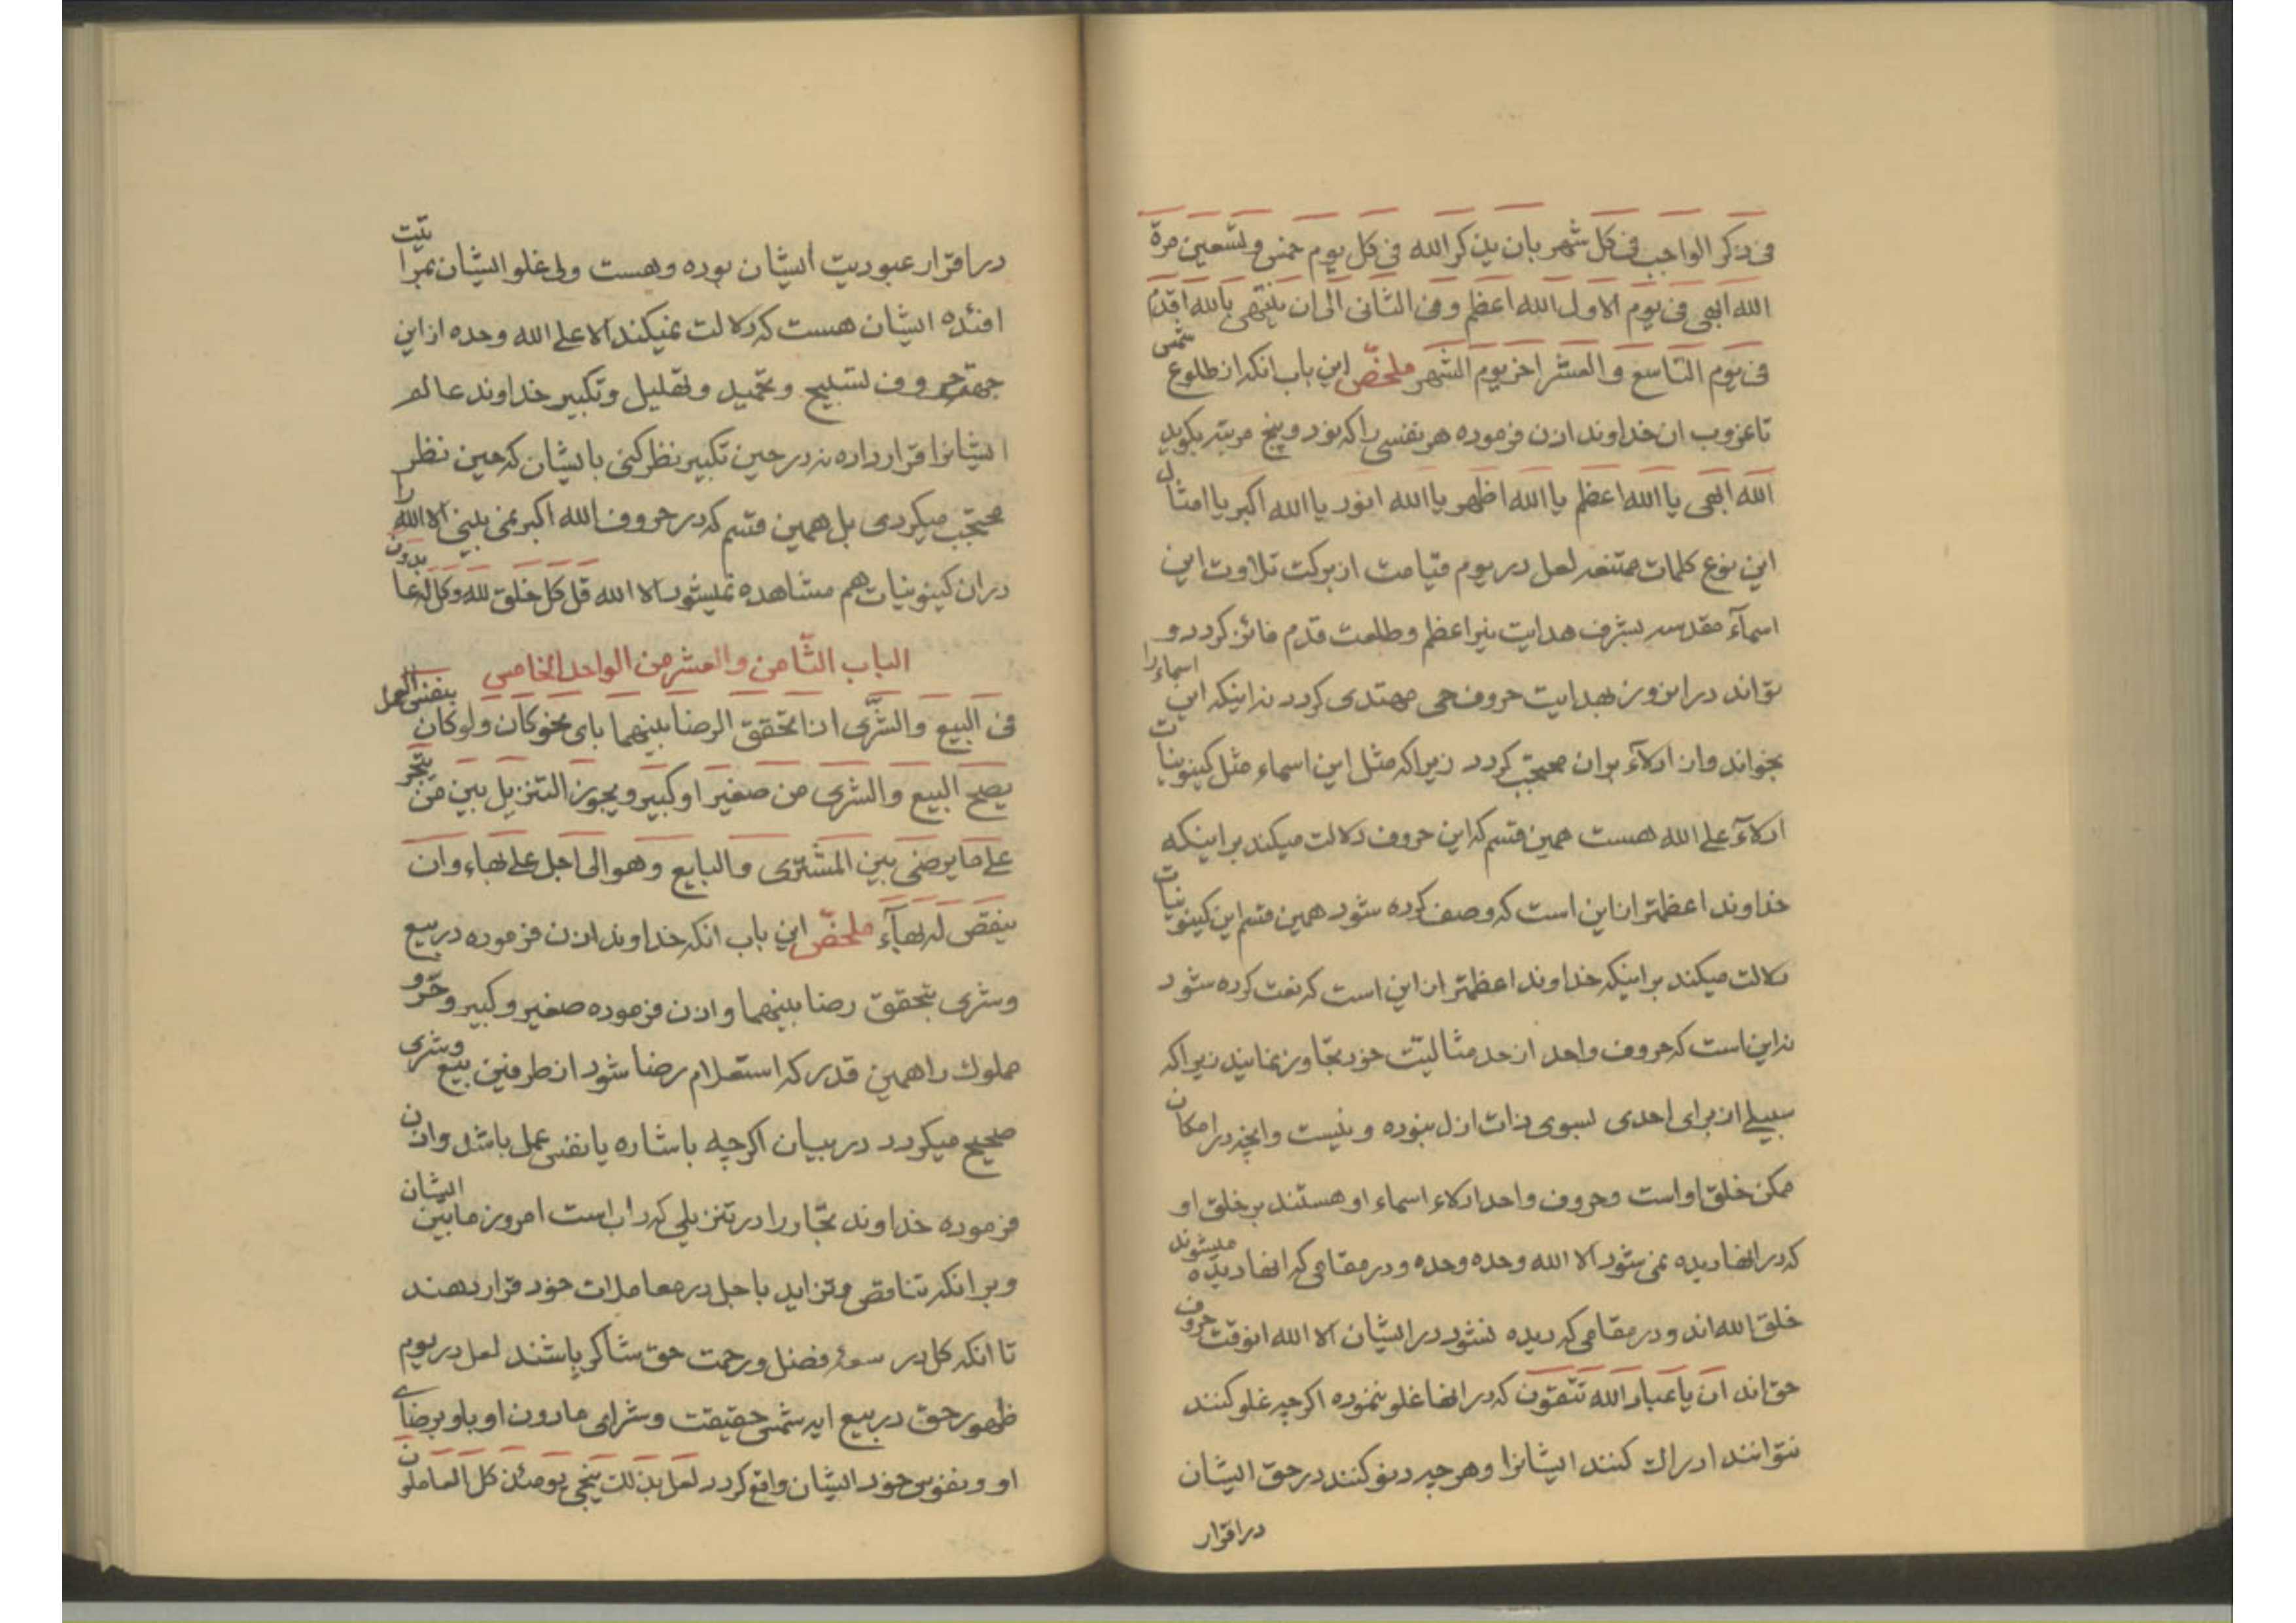 فی ذکر الواجب فی کل شهر بان یذکر الله فی کل یوم خمس و تسعین مرة
الله ابهی فی یوم الاول الله اعظم و فی الثانی الی ان ینتهی بالله اقدم
فی یوم التاسع و العشر اخر یوم الشهر ملخص این باب انکه از طلوع شمس
تا غروب ان خداوند اذن فرموده هر نفسی را که نود و پنج مرتبه بکوید
الله ابهی یا الله اعظم یا الله اظهر یا الله انور یا الله اکبر یا امثال
این نوع کلمات ممتنعه لعل در یوم قیامت از برکت تلاوت این
اسمآء مقدسه بشرف هدایت نیر اعظم و طلعت قدم فائز کردد و
تواند در انروز بهدایت حروف حی مهتدی کردد نه اینکه این اسماء را
بخواند و از ادلآء بران محتجب کردد زیرا که مثل این اسماء مثل کینونیات
ادلآء علی الله هست همین قسم که این حروف دلالت میکند بر اینکه
خداوند اعظمتر از این است که وصف کرده شود همین قسم این کینونیات
دلالت میکند بر اینکه خداوند اعظمتر از این است که نعت کرده شود
نه این است که حروف واحد از حد مثالیّت خود تجاوز نمایند زیرا که
سبیلی از برای احدی بسوی ذات ازل نبوده و نیست و انچه در امکان
ممکن خلق او است و حروف واحد ادلاء اسماء او هستند بر خلق او
که در انها دیده نمی شود الا الله وحده وحده و در مقامی که انها دیده میشوند
خلق الله اند و در مقامی که دیده نشود در ایشان الا الله انوقت حروف
حق اند ان یا عباد الله تتقون که در انها غلو ننموده اکرچه غلو کنند
نتوانند ادراک کنند ایشانرا و هر چه دنو کنند در حق ایشان
در اقرار
در اقرار عبودیت ایشان بوده و هست ولی غلو ایشان بمرائیت
افئده ایشان هست که دلالت نمیکند الا علی الله وحده از این
جهة حروف تسبیح و تحمید و تهلیل و تکبیر خداوند عالم
ایشانرا قرار داده نه در حین تکبیر نظر کنی بایشان که حین نظر
محتجب میکردی بل همین قسم که در حروف الله اکبر نمی بینی الا الله را
در ان کینونیات هم مشاهده نمیشود الا الله قل کل خلق لله و کل له عابدون
الباب الثّامن و العشر من الواحد الخامس
فی البیع و الشّری اذا تحقق الرضا بینهما بای نحو کان و لو کان بنفس العمل
یصح البیع و الشری من صغیر او کبیر و یجوز التنزیل بین من یتجر
علی ما یرضی بین المشتری و البایع و هو الی اجل علی بهاء و ان
ینقص له بهآء ملخص این باب انکه خداوند اذن فرموده در بیع
و شری بتحقق رضا بینهما و اذن فرموده صغیر و کبیر و حر و
مملوک را همین قدر که استعلام رضا شود از طرفین بیع و شری
صحیح میکردد در بیان اکرچه باشاره یا نفس عمل باشد و اذن
فرموده خداوند تجّار را در تنزیلی که داب است امروز ما بین ایشان
و بر انکه تناقص و تزاید باجل در معاملات خود قرار دهند
تا انکه کل در سعهٔ فضل و رحمت حق شاکر باشند لعل در یوم
ظهور حق در بیع ایه شمس حقیقت و شرای مادون او باو برضای
او و نفوس خود ایشان واقع کردد لعل بذلک ینجی یومئذ کل العاملون